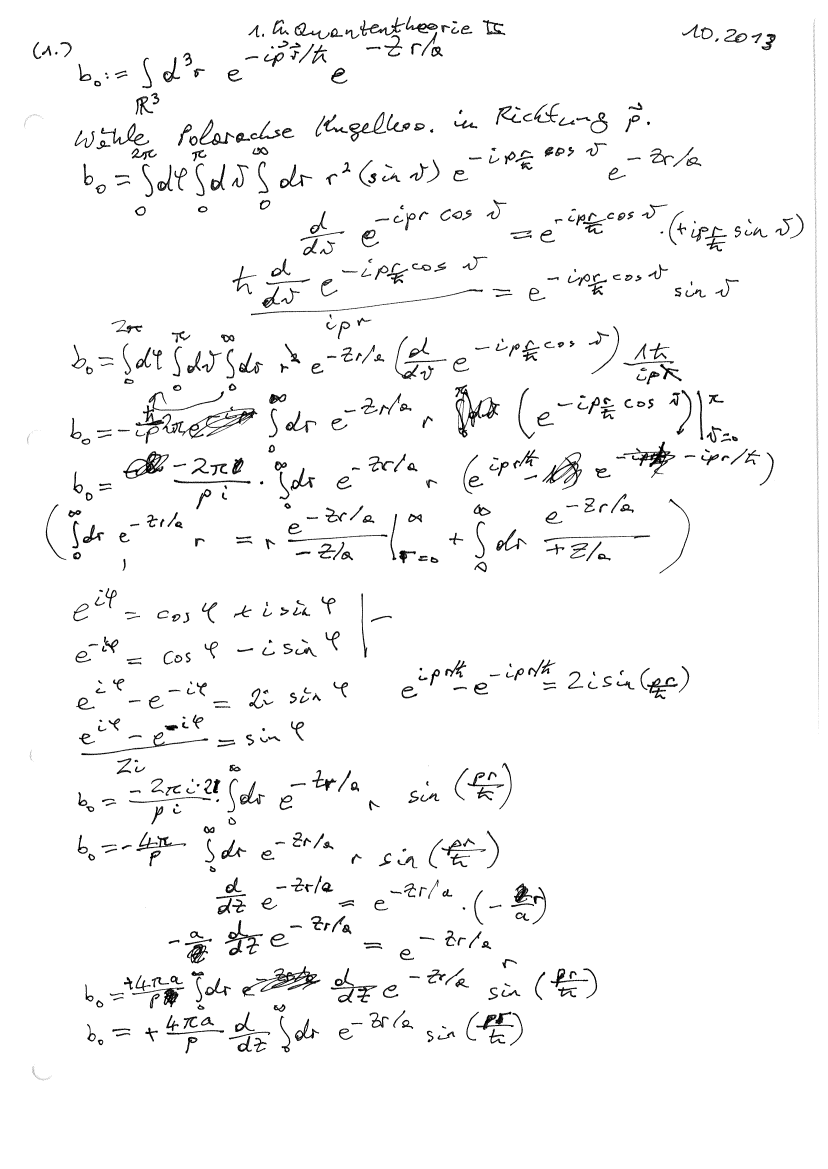 1. Üb Quantentheorie II 10.2013
(1.)
b₀ := ∫_{ℝ³} d³r e^{-ip⃗r⃗/ħ} e^{-Zr/a}
Wähle Polarachse Kugelkoo. in Richtung p⃗.
b₀ = ∫₀^{2π} dφ ∫₀^{π} dϑ ∫₀^{∞} dr r² (sin ϑ) e^{-ip r/ħ cos ϑ} e^{-Zr/a}
d/dϑ e^{-ipr cos ϑ} = e^{-ipr/ħ cos ϑ} · (+ipr/ħ sin ϑ)
ħ d/dϑ e^{-ip r/ħ cos ϑ} / ipr = e^{-ip r/ħ cos ϑ} sin ϑ
b₀ = ∫₀^{2π} dφ ∫₀^{π} dϑ ∫₀^{∞} dr r² e^{-Zr/a} (d/dϑ e^{-ip r/ħ cos ϑ}) 1ħ/ipr
b₀ = -ħ/ip 2π ∫₀^{∞} dr e^{-Zr/a} r (e^{-ip r/ħ cos ϑ})|_{ϑ=0}^{π}
b₀ = -2π/pi · ∫₀^{∞} dr e^{-Zr/a} r (e^{ipr/ħ} - e^{-ipr/ħ})
(∫₀^{∞} dr e^{-Zr/a} r = r e^{-Zr/a}/-Z/a |_{r=0}^{∞} + ∫₀^{∞} dr e^{-Zr/a}/+Z/a)
e^{iφ} = cos φ + i sin φ | -
e^{-iφ} = cos φ - i sin φ |
e^{iφ} - e^{-iφ} = 2i sin φ e^{ipr/ħ} - e^{-ipr/ħ} = 2i sin(pr/ħ)
e^{iφ} - e^{-iφ} / 2i = sin φ
b₀ = -2πi·2/pi · ∫₀^{∞} dr e^{-Zr/a} r sin (pr/ħ)
b₀ = -4π/p ∫₀^{∞} dr e^{-Zr/a} r sin (pr/ħ)
d/dZ e^{-Zr/a} = e^{-Zr/a} · (-r/a)
-a d/dZ e^{-Zr/a} = e^{-Zr/a} r
b₀ = +4πa/p ∫₀^{∞} dr d/dZ e^{-Zr/a} sin (pr/ħ)
b₀ = +4πa/p d/dZ ∫₀^{∞} dr e^{-Zr/a} sin (pr/ħ)